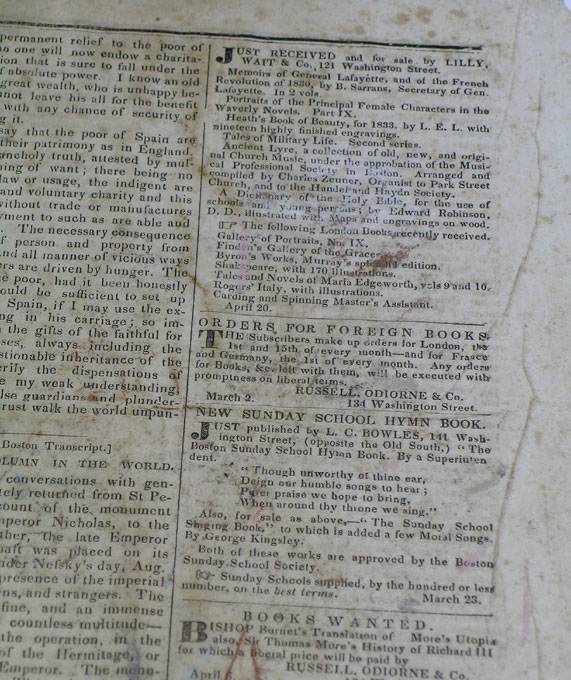 permanent relief to the poor of
no one will now endow a charita-
ion that is sure to fall under the
f absolute power. I know an old
great wealth, who is unhappy be-
nnot leave his all for the benefit
with any chance of security of
g it.
say that the poor of Spain are
their patrimony as in England.
ancholy truth, attested by mul-
ning of want; there being no
law or usage, the indigent are
and voluntary charity and this
without trade or manufactures
yment to such as are able and
. The necessary consequence
f person and property from
nd all manner of vicious ways
ers are driven by hunger. The
e poor, had it been honestly
ould be sufficient to set up
Spain, if I may use the ex-
ng in his carriage; so im-
the gifts of the faithful for
ses, always including the
stionable inheritance of the
erily the dispensations of
e my weak understanding,
lse guardians and plunder-
rust walk the world unpun-
Boston Transcript.]
OLUMN IN THE WORLD.
conversations with gen-
tely returned from St Pe-
count of the monument
mperor Nicholas, to the
ther, the late Emperor
haft was placed on its
nder Nefsky's day, Aug.
presence of the imperial
ns, and strangers. The
fine, and an immense
countless multitude—
the operation, in the
of the Hermitage, or
Emperor. The mono-
JUST RECEIVED and for sale by LILLY,
WAIT & Co., 121 Washington Street.
Memoirs of General Lafayette, and of the French
Revolution of 1830, by B. Sarrans, Secretary of Gen.
Lafayette. In 2 vols.
Portraits of the Principal Female Characters in the
Waverly Novels. Part IX.
Heath's Book of Beauty, for 1833. by L. E. L. with
nineteen highly finished engravings.
Tales of Military Life. Second series.
Ancient Lyre, a collection of old, new, and origi-
nal Church Music, under the approbation of the Musi-
cal Professional Society in Boston. Arranged and
compiled by Charles Zeuner, Organist to Park Street
Church, and to the Handel and Haydn Society.
A Dictionary of the Holy Bible, for the use of
schools and young persons; by Edward Robinson,
D. D., illustrated with Maps and engravings on wood.
☞ The following London Books recently received.
Gallery of Portraits, No. IX.
Finden's Gallery of the Graces
Byron's Works, Murray's splendid edition.
Shakspeare, with 170 illustrations.
Tales and Novels of Maria Edgeworth, vols 9 and 10.
Rogers' Italy, with illustrations.
Carding and Spinning Master's Assistant.
April 20.
ORDERS FOR FOREIGN BOOKS.
THE Subscribers make up orders for London, the
1st and 15th of every month—and for France
and Germany, the 1st of every month. Any orders
for Books, &c. left with them, will be executed with
promptness on liberal terms.
RUSSELL, ODIORNE & Co.
March 2. 134 Washington Street.
NEW SUNDAY SCHOOL HYMN BOOK.
JUST published by L. C. BOWLES, 141 Wash-
ington Street, (opposite the Old South,) "The
Boston Sunday School Hymn Book. By a Superinten
dent.
"Though unworthy of thine ear,
Deign our humble songs to hear;
Purer praise we hope to bring,
When around thy throne we sing."
Also, for sale as above,—"The Sunday School
Singing Book," to which is added a few Moral Songs.
By George Kingsley.
Both of these works are approved by the Boston
Sunday School Society.
☞ Sunday Schools supplied, by the hundred or less
number, on the best terms. March 23.
BOOKS WANTED.
BISHOP Burnet's Translation of More's Utopia
also, Sir Thomas More's History of Richard III
for which a liberal price will be paid by
RUSSELL, ODIORNE & Co.
April 6